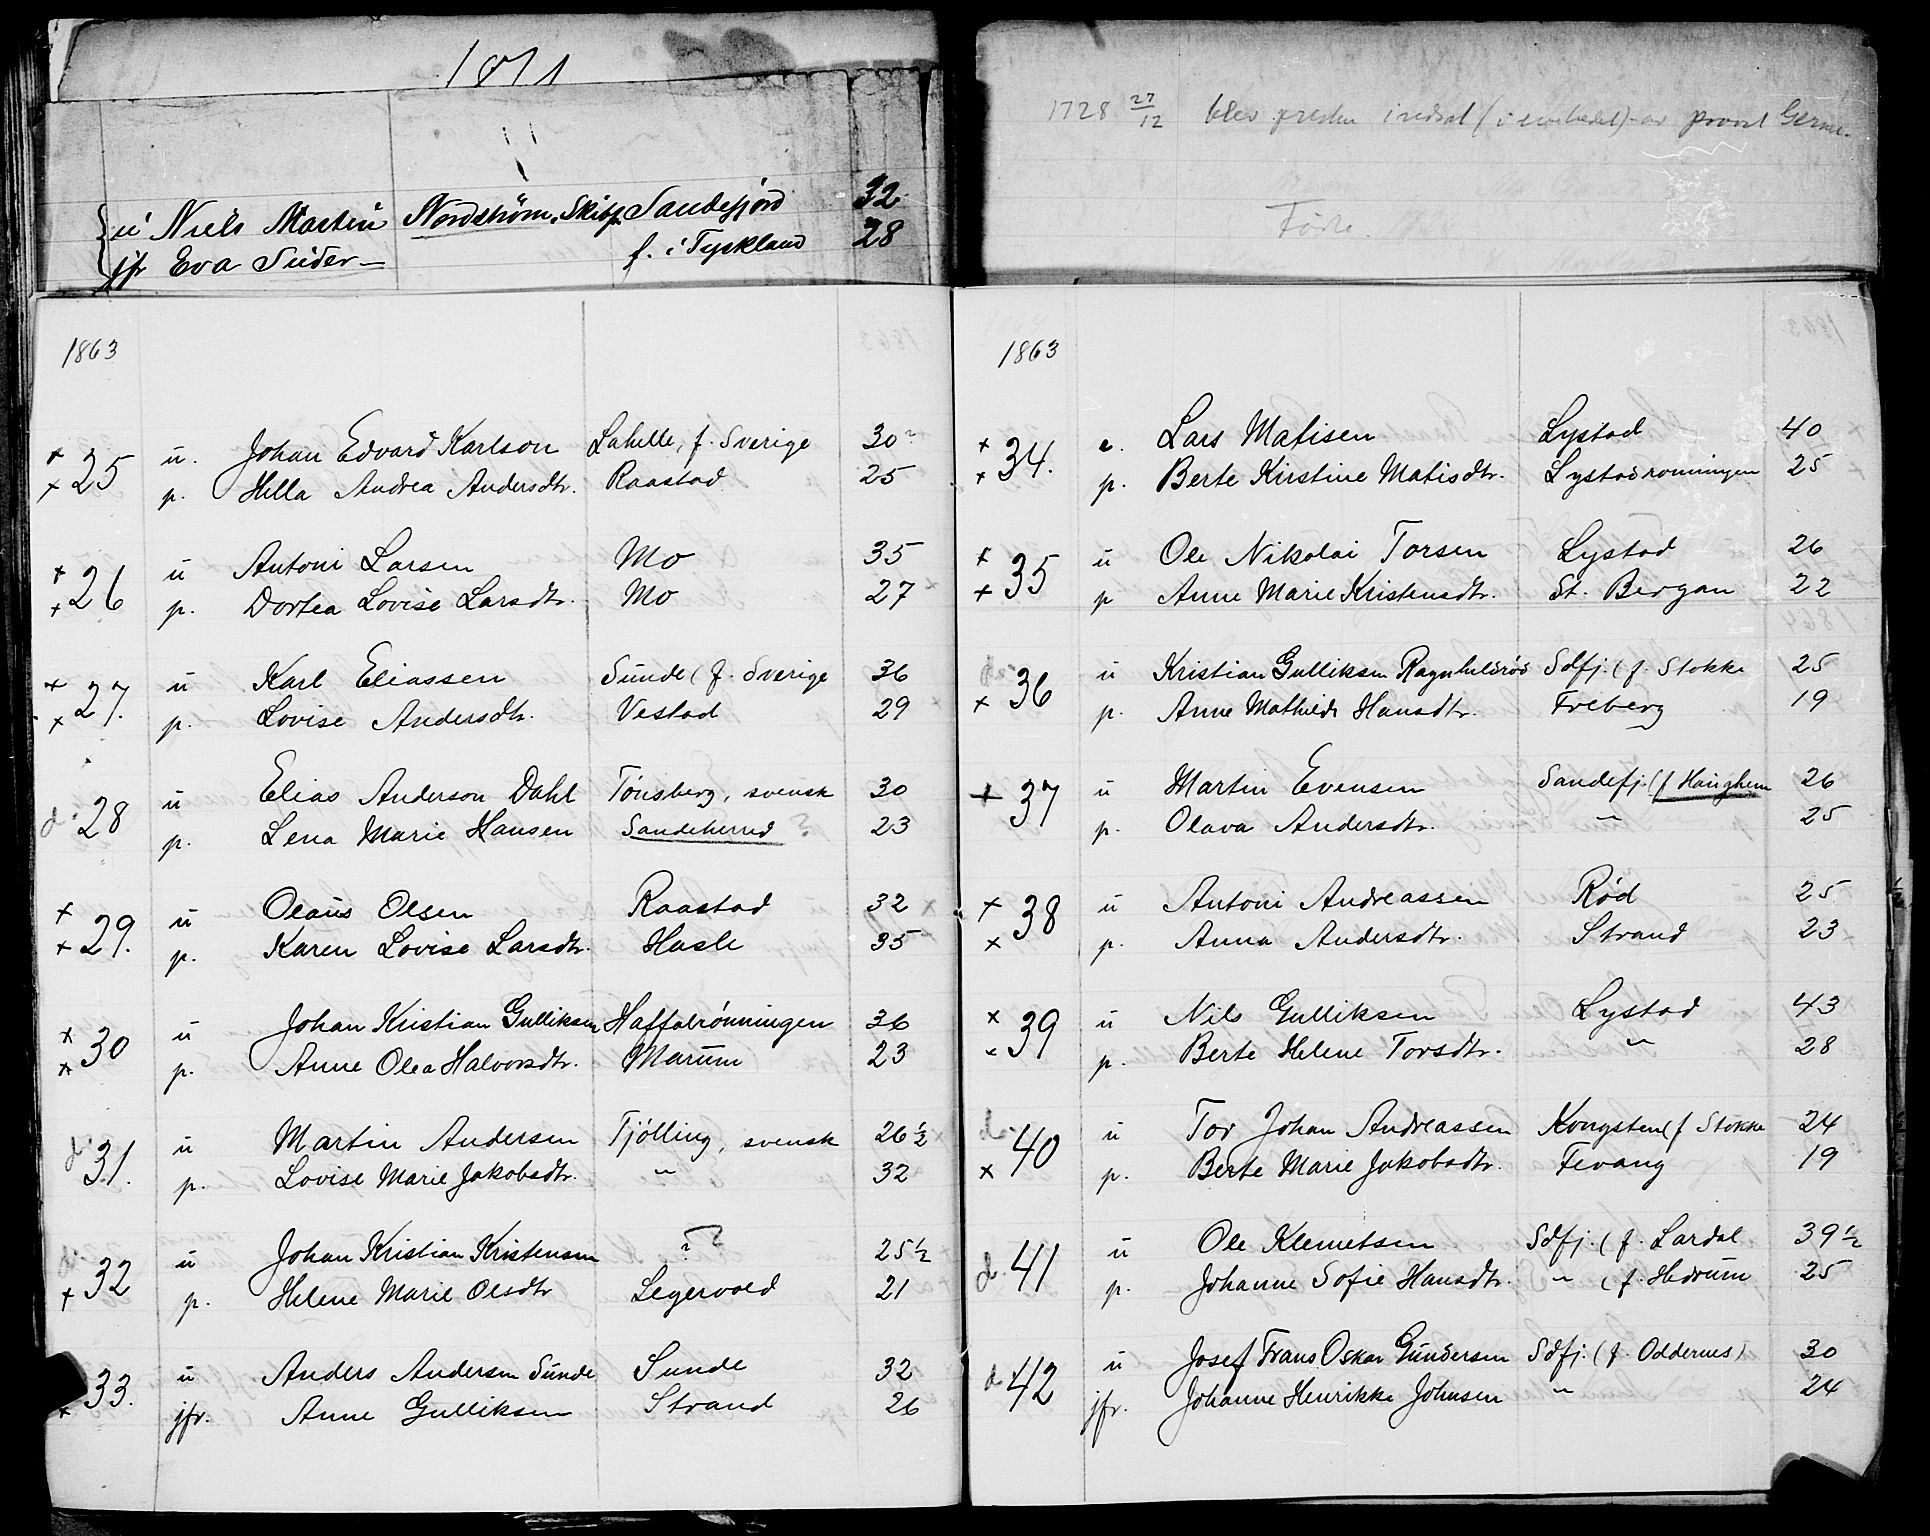 1871
u Niels Martin Nordstrøm, Skibp. Sandefjord 32
jfr Eva Suder — f. i Tyskland 28
1863
25 u. Johan Edvard Karlson Lahelle, f. Sverige 30
p. Hella Andrea Andersdtr. Raastad 25
26 u Antoni Larsen Mo 35
p. Dortea Lovise Larsdtr. Mo 27
27. u Karl Eliassen Sunde (f. Sverige 36
p. Lovise Andersdtr. Vestad 29
28 u Elias Anderson Dahl Tønsberg, svensk 30
p. Lena Marie Hansen Sandeherred ? 23
29. u Olaus Olsen Raastad 32
p. Karen Lovise Larsdtr. Hasle 35
30 u Johan Kristian Gulliksen Haffalrønningen 36
p. Anne Olea Halvorsdtr. Marum 23
31. u Martin Andersen Tjølling, svensk 26½
p. Lovise Marie Jakobsdtr. " 32
32 u Johan Kristian Kristensen ? 25½
p. Helene Marie Olsdtr Legervold 21
33. u Anders Andersen Sunde Sunde 32
jfr. Anne Gulliksen Strand 26
1728 27/12 blev presten indsat ( av provst
Føste.
1863
34. e. Lars Matisen Lystad 40
p. Berte Kirstine Matisdtr. Lystadrønningen 25
35 u Ole Nikolai Torsen Lystad 26
p Anne Marie Kristensdtr. St. Bergan 22
36 u Kristian Gulliksen Ragnhildsrød Sdfj. (f. Stokke 25
p. Anne Mathilde Hansdtr. Freberg 19
37 u Martin Evensen Sandefj. (f Haughem 26
p. Olava Andersdtr. " 25
38 u Antoni Andreassen Rød 25
p. Anna Andersdtr. Strand 23
39 u Nils Gulliksen Lystad 43
p. Berte Helene Torsdtr. " 28
40 u Tor Johan Andreassen Kongsten (f Stokke 24
p. Berte Marie Jakobsdtr. Fevang 19
41 u Ole Klemetsen Sdfj. (f. Lardal 39½
p. Johanne Sofie Hansdtr. " (f. Hedrum 25
42 u Josef Frans Oskar Gundersen Sdfj. (f. Oddernes) 30
jfr. Johanne Henrikke Johnsen " 24